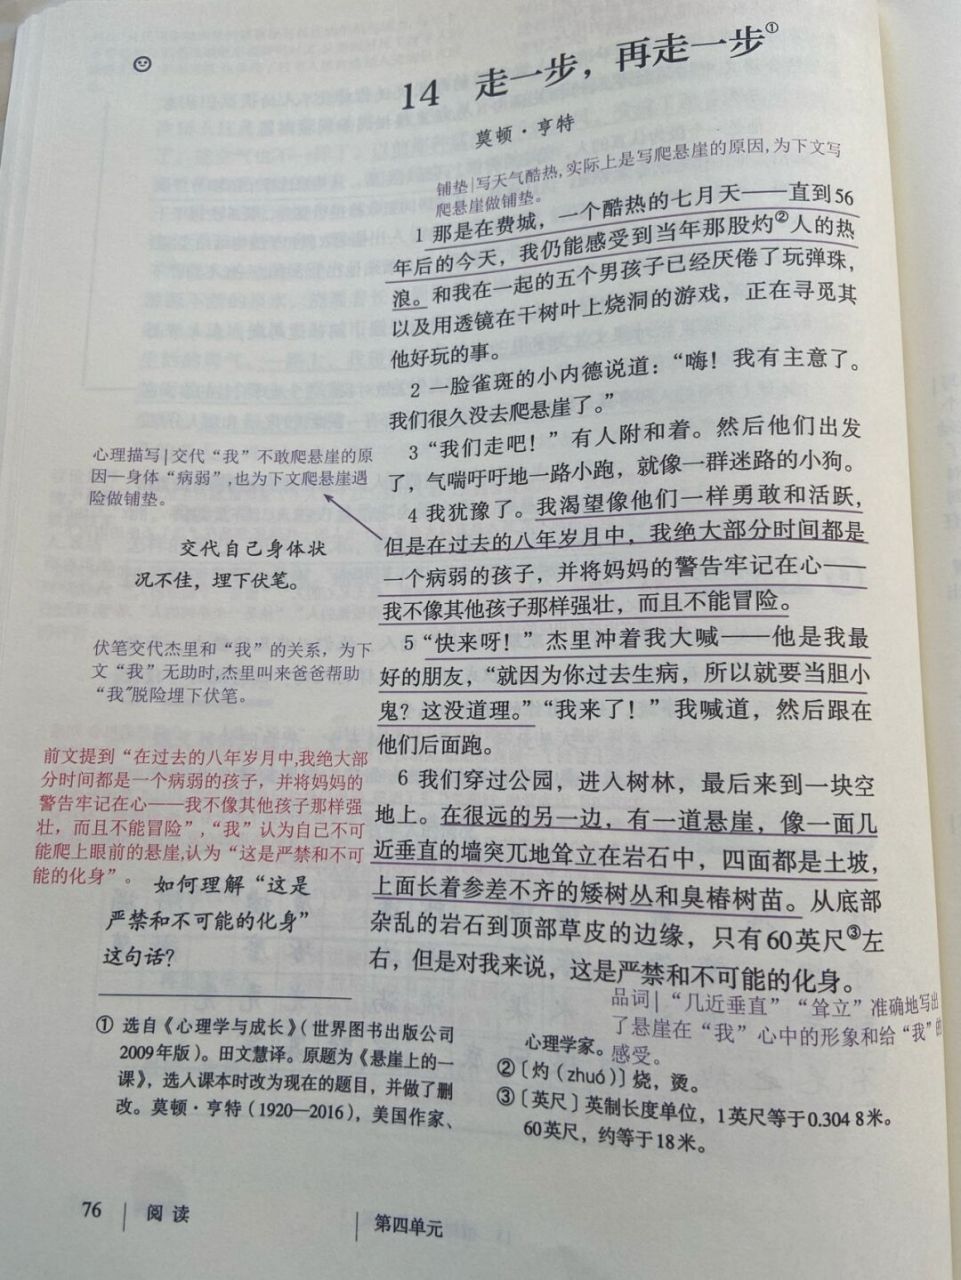 14 走一步，再走一步①
莫顿·亨特
铺垫|写天气酷热,实际上是写爬悬崖的原因,为下文写
爬悬崖做铺垫。
1 那是在费城，一个酷热的七月天——直到56
年后的今天，我仍能感受到当年那股灼②人的热
浪。和我在一起的五个男孩子已经厌倦了玩弹珠，
以及用透镜在干树叶上烧洞的游戏，正在寻觅其
他好玩的事。
2 一脸雀斑的小内德说道：“嗨！我有主意了。
我们很久没去爬悬崖了。”
3 “我们走吧！”有人附和着。然后他们出发
了，气喘吁吁地一路小跑，就像一群迷路的小狗。
4 我犹豫了。我渴望像他们一样勇敢和活跃，
但是在过去的八年岁月中，我绝大部分时间都是
一个病弱的孩子，并将妈妈的警告牢记在心——
我不像其他孩子那样强壮，而且不能冒险。
心理描写|交代“我”不敢爬悬崖的原
因—身体“病弱”,也为下文爬悬崖遇
险做铺垫。
交代自己身体状
况不佳，埋下伏笔。
5 “快来呀！”杰里冲着我大喊——他是我最
好的朋友，“就因为你过去生病，所以就要当胆小
鬼？这没道理。”“我来了！”我喊道，然后跟在
他们后面跑。
伏笔交代杰里和“我”的关系，为下
文“我”无助时,杰里叫来爸爸帮助
“我”脱险埋下伏笔。
6 我们穿过公园，进入树林，最后来到一块空
地上。在很远的另一边，有一道悬崖，像一面几
近垂直的墙突兀地耸立在岩石中，四面都是土坡，
上面长着参差不齐的矮树丛和臭椿树苗。从底部
杂乱的岩石到顶部草皮的边缘，只有60英尺③左
右，但是对我来说，这是严禁和不可能的化身。
前文提到“在过去的八年岁月中,我绝大部
分时间都是一个病弱的孩子，并将妈妈的
警告牢记在心——我不像其他孩子那样强
壮，而且不能冒险”,“我”认为自己不可
能爬上眼前的悬崖,认为“这是严禁和不可
能的化身”。
如何理解“这是
严禁和不可能的化身”
这句话？
品词|“几近垂直”“耸立”准确地写出
了悬崖在“我”心中的形象和给“我”的
感受。
① 选自《心理学与成长》（世界图书出版公司
2009年版）。田文慧译。原题为《悬崖上的一
课》，选入课本时改为现在的题目，并做了删
改。莫顿·亨特（1920—2016），美国作家、
心理学家。
②〔灼（zhuó）〕烧，烫。
③〔英尺〕英制长度单位，1英尺等于0.304 8米。
60英尺，约等于18米。
76 阅读 第四单元